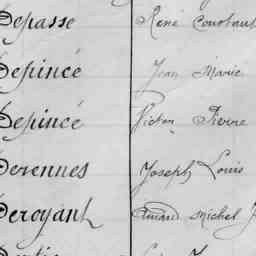 Depasse René
Depincé Jean Marie
Depincé Victor Pierre
Derennes Joseph Louis
Deroyant Michel